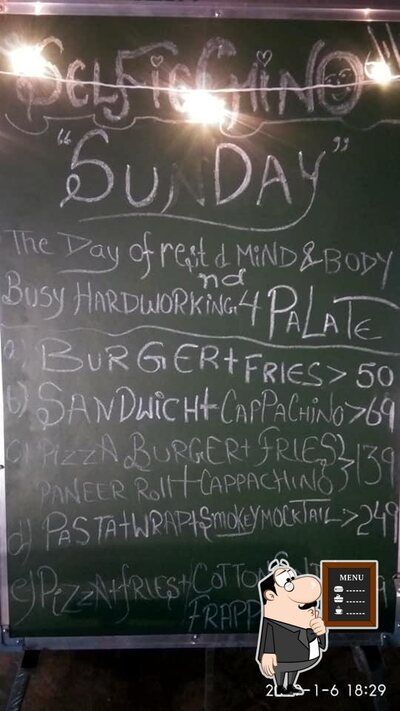 SELFIECHINO
"SUNDAY"
The Day of rest d MIND & BODY
nd
BUSY HARDWORKING 4 PALATE
a) BURGER + FRIES > 50
b) SANDWICH + CAPPACHINO > 69
c) PIZZA BURGER + FRIES } 139
PANEER Roll + CAPPACHINO
d) PASTA + WRAP + SMOKEY MOCKTAIL > 249
PIZZA + FRIES + COTTON
FRAPP
MENU
1-6 18:29